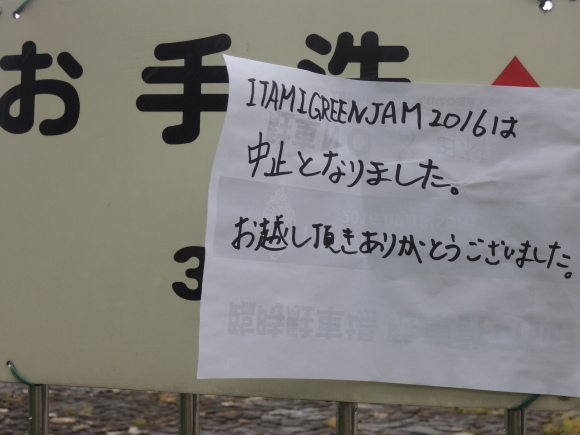 お手洗
ITAMIGREENJAM2016は
中止となりました。
お越し頂きありがとうございました。
3
臨時駐車場